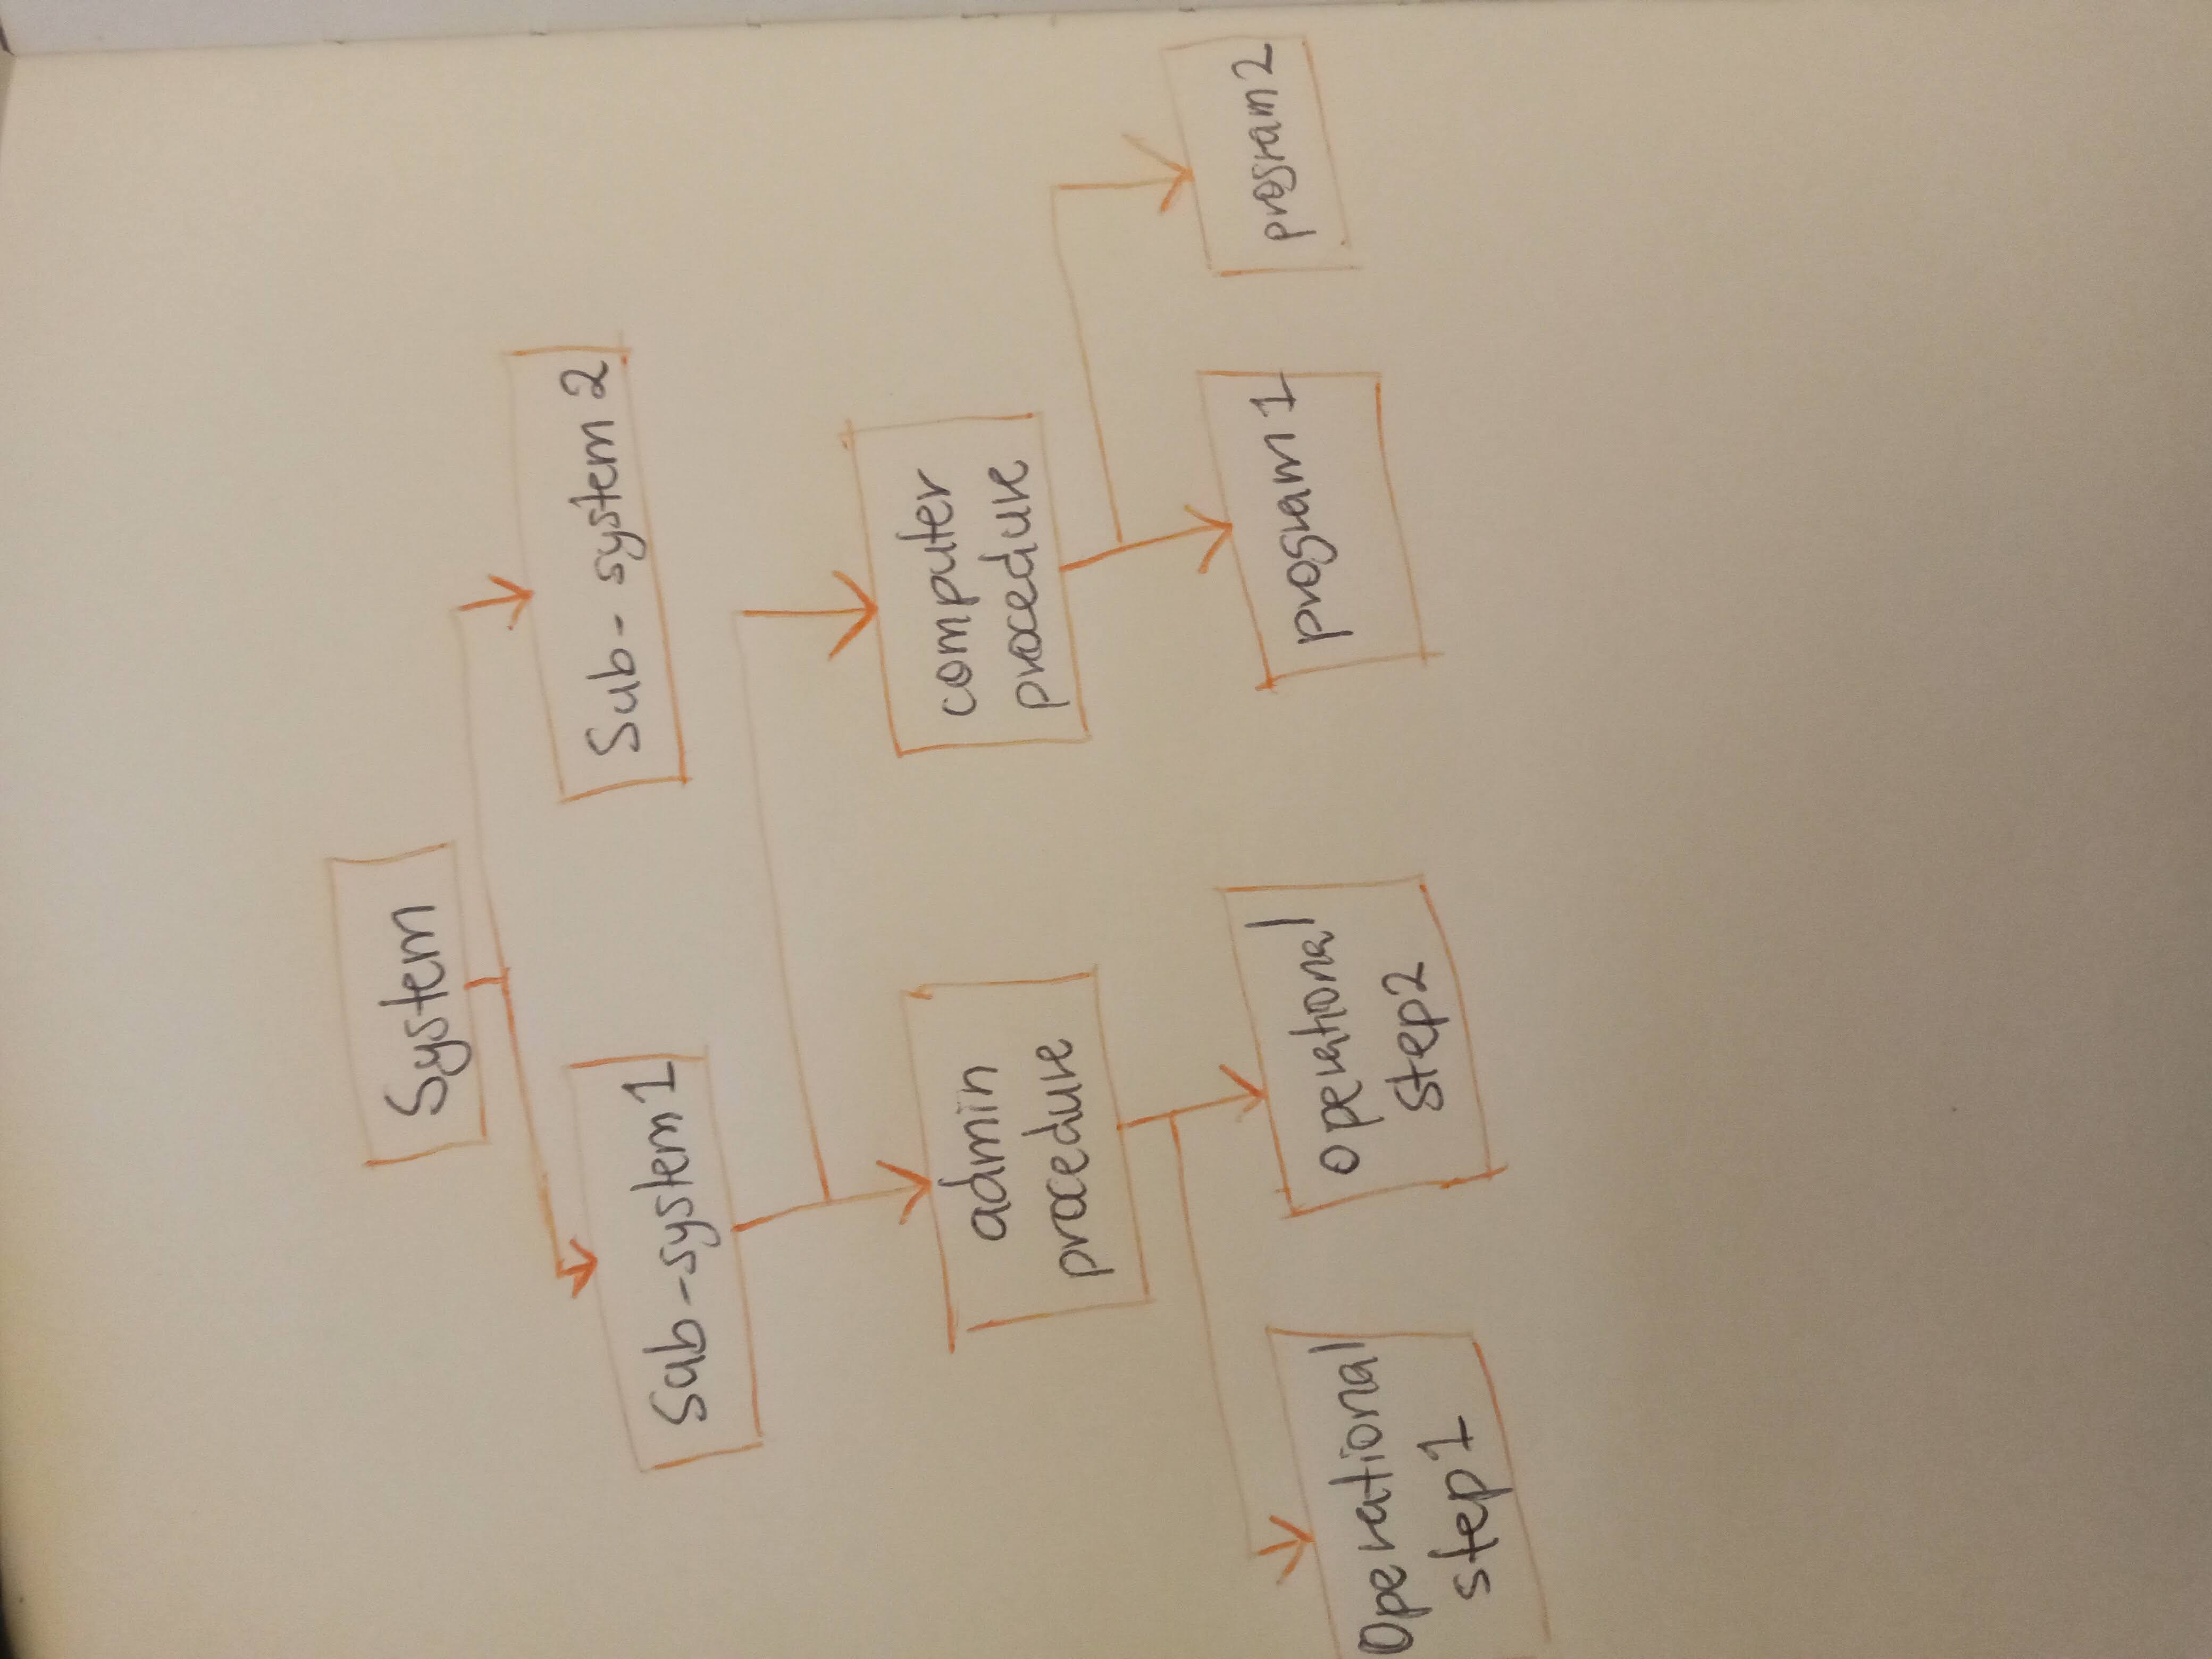 System
Sub-system 1
Sub-system 2
admin
procedure
computer
procedure
Operational
step1
operational
step2
program 1
program 2